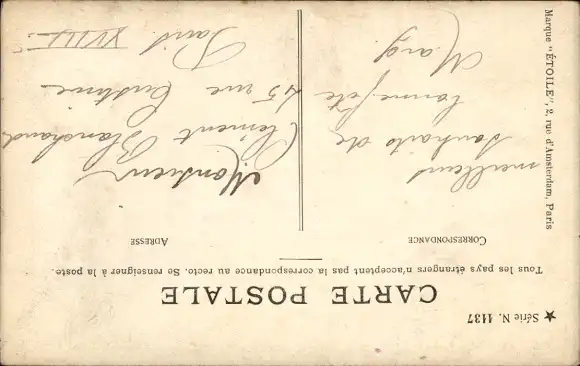 ★ Série N. 1137
CARTE POSTALE
Tous les pays étrangers n'acceptent pas la correspondance au recto. Se renseigner à la poste.
CORRESPONDANCE
meilleurs
souhaits de
bonne fête
Marg.
ADRESSE
Monsieur
Clément Blanchard
45 rue Custine
Paris
XVIII
Marque "ÉTOILE", 2, rue d'Amsterdam, Paris